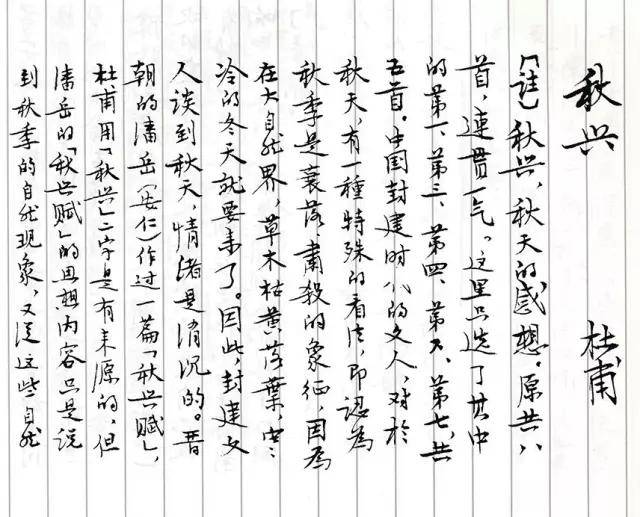 秋兴 杜甫
【註】秋兴，秋天的感想。原共八
首，連貫一气。这里只选了其中
的第一、第三、第四、第六、第七，共
五首。中国封建时代的文人，对於
秋天，有一種特殊的看法，即認為
秋季是衰落、肃殺的象征，因為
在大自然界，草木枯黄，落葉，寒
冷的冬天就要来了。因此，封建文
人谈到秋天，情绪是消沉的。晋
朝的潘岳（安仁）作过一篇「秋兴赋」，
杜甫用「秋兴」二字是有来源的，但
潘岳的「秋兴赋」的思想内容只是说
到秋季的自然现象，又従这些自然